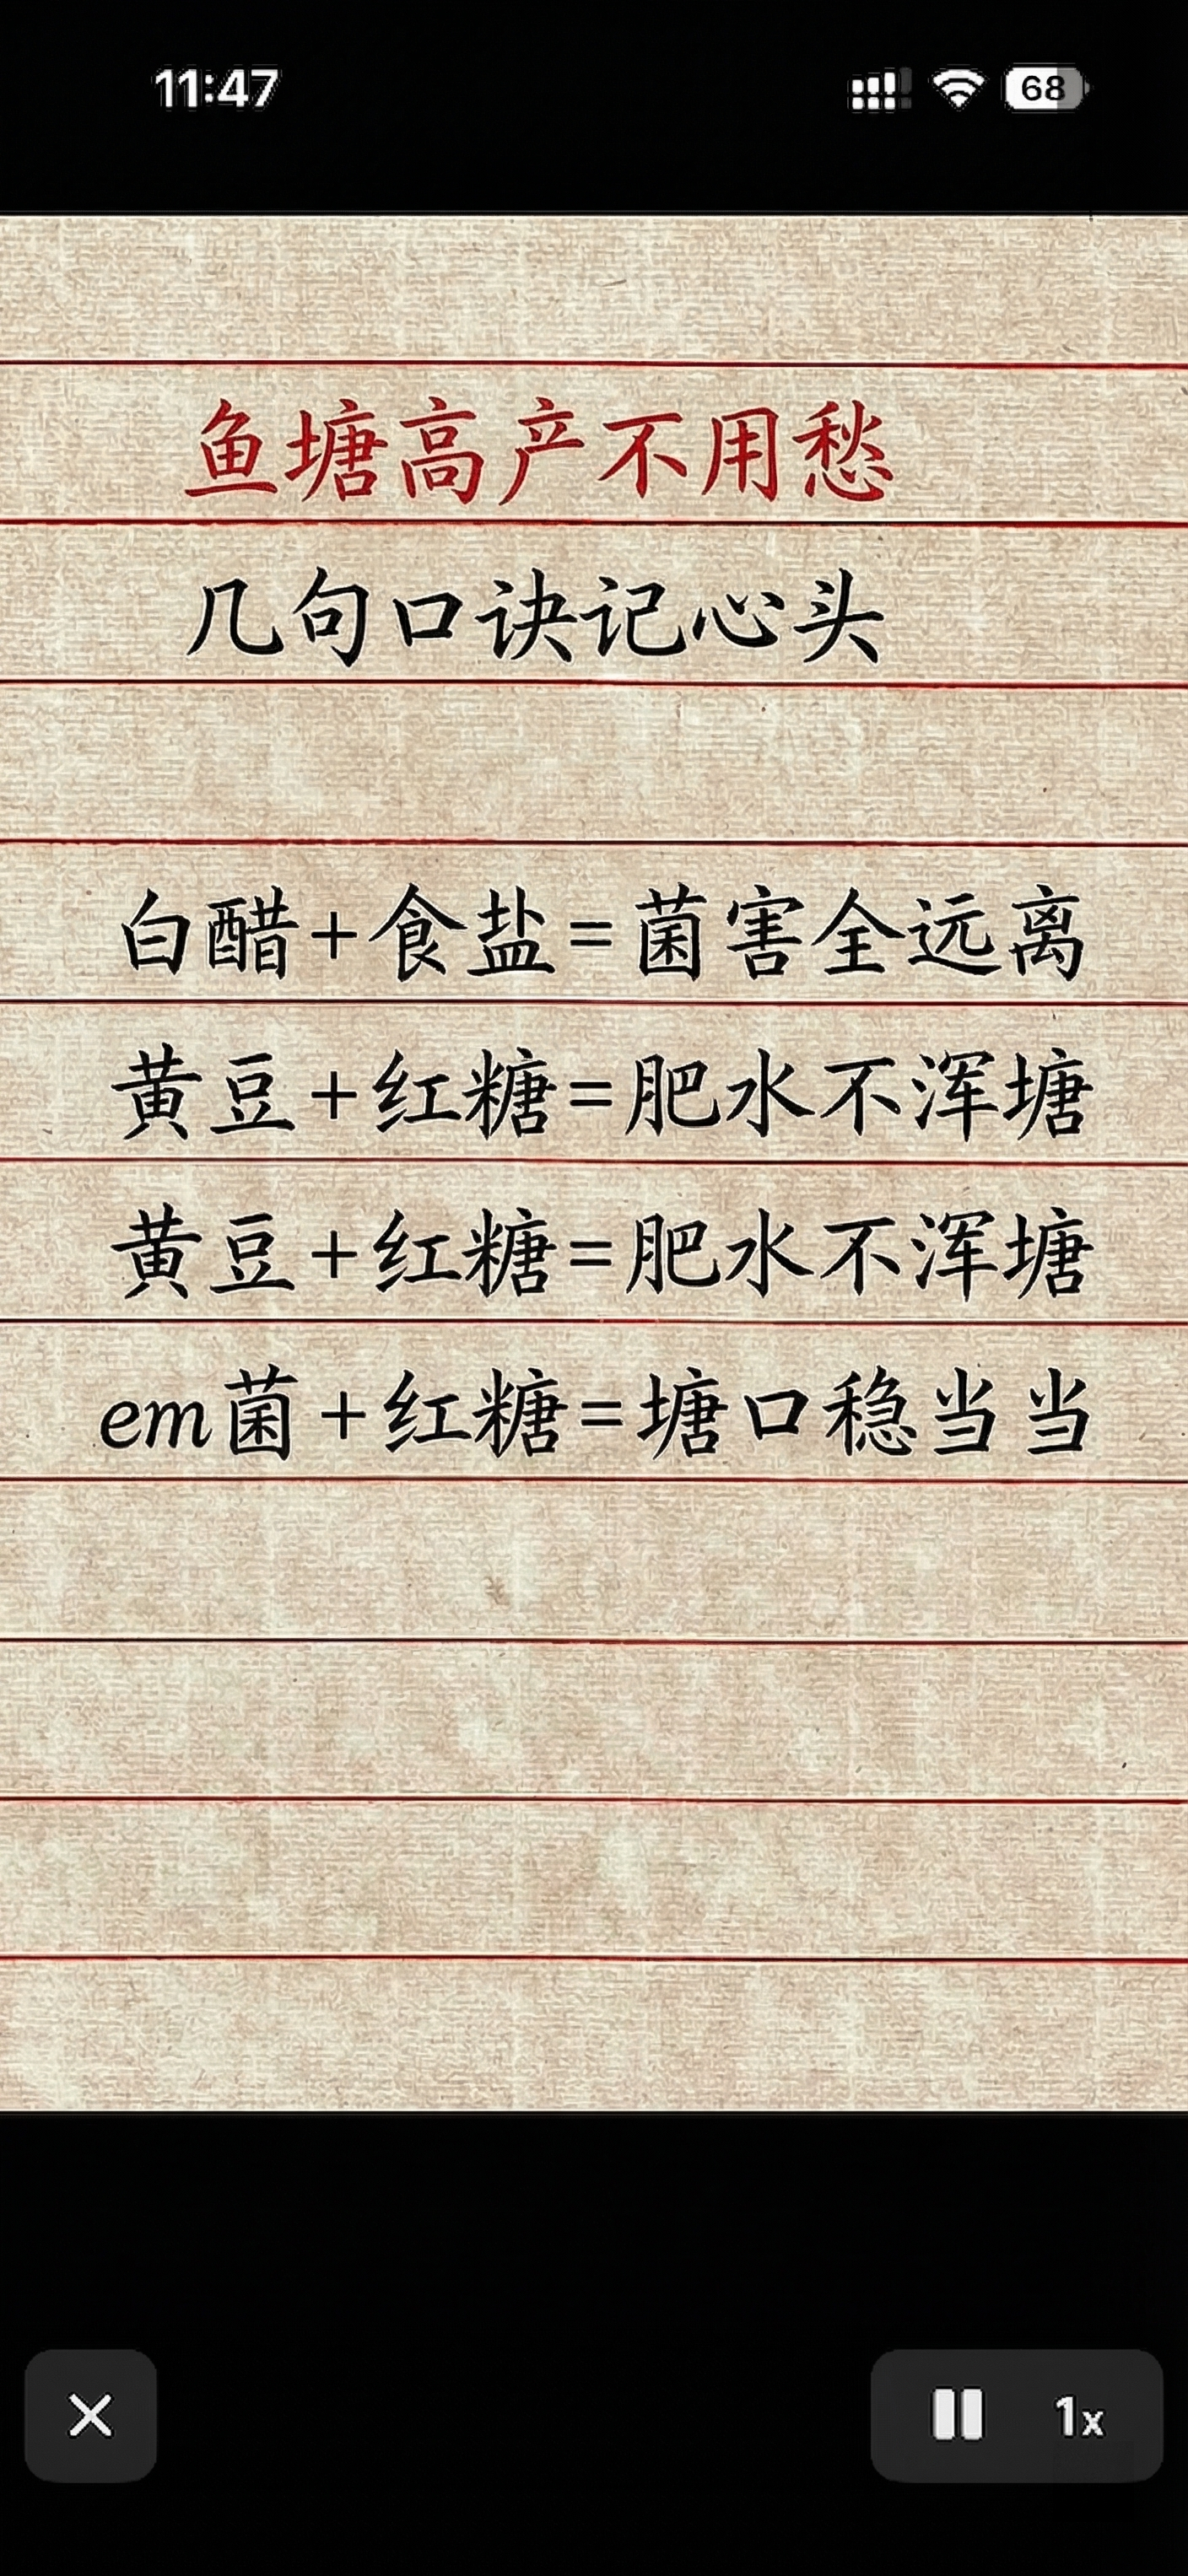 11:47
68
鱼塘高产不用愁
几句口诀记心头
白醋+食盐=菌害全远离
黄豆+红糖=肥水不浑塘
黄豆+红糖=肥水不浑塘
em菌+红糖=塘口稳当当
1x